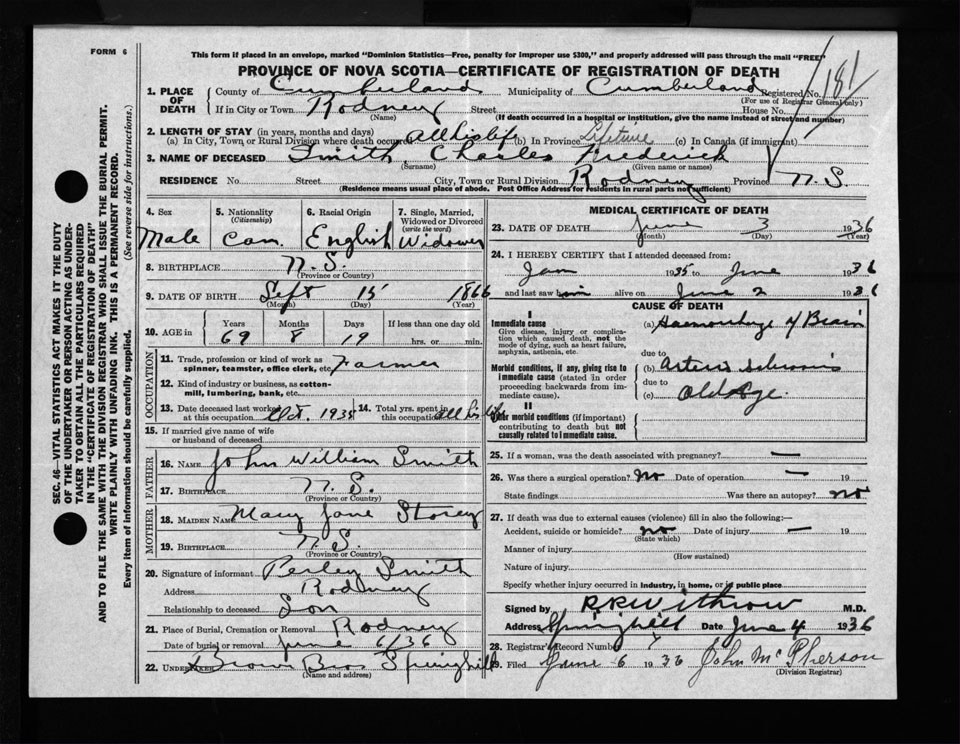 FORM 6
This form if placed in an envelope, marked "Dominion Statistics—Free, penalty for improper use $300," and properly addressed will pass through the mail "FREE"
PROVINCE OF NOVA SCOTIA—CERTIFICATE OF REGISTRATION OF DEATH
1. PLACE OF DEATH
County of Cumberland Municipality of Cumberland Registered No. 181
(For use of Registrar General only)
If in City or Town Rodney Street House No.
(Name) (If death occurred in a hospital or institution, give the name instead of street and number)
2. LENGTH OF STAY (in years, months and days)
(a) In City, Town or Rural Division where death occurred all his life (b) In Province Lifetime (c) In Canada (if immigrant)
3. NAME OF DECEASED Smith, Charles Frederick
(Surname) (Given name or names)
RESIDENCE No. Street City, Town or Rural Division Rodney Province N.S.
(Residence means usual place of abode. Post Office Address for residents in rural parts not sufficient)
4. Sex
Male
5. Nationality
(Citizenship)
Can.
6. Racial Origin
English
7. Single, Married, Widowed or Divorced
(write the word)
Widower
8. BIRTHPLACE N.S.
(Province or Country)
9. DATE OF BIRTH Sept 15 1866
(Month) (Day) (Year)
10. AGE in
Years Months Days If less than one day old
69 8 19 hrs. or min.
OCCUPATION
11. Trade, profession or kind of work as spinner, teamster, office clerk, etc. Farmer
12. Kind of industry or business, as cotton-mill, lumbering, bank, etc.
13. Date deceased last worked at this occupation Oct. 1935
14. Total yrs. spent in this occupation all his life
15. If married give name of wife or husband of deceased
FATHER
16. NAME John William Smith
17. BIRTHPLACE N.S.
(Province or Country)
MOTHER
18. MAIDEN NAME Mary Jane Storey
19. BIRTHPLACE N.S.
(Province or Country)
20. Signature of informant Perley Smith
Address Rodney
Relationship to deceased Son
21. Place of Burial, Cremation or Removal Rodney
Date of burial or removal June 6/36
22. UNDERTAKER Brown Bros Springhill
(Name and address)
MEDICAL CERTIFICATE OF DEATH
23. DATE OF DEATH June 3 1936
(Month) (Day) (Year)
24. I HEREBY CERTIFY that I attended deceased from:
Jan 1935 to June 1936
and last saw him alive on June 2 1936
CAUSE OF DEATH
I
Immediate cause (a) Haemorrhage of Brain
Give disease, injury or complication which caused death, not the mode of dying, such as heart failure, asphyxia, asthenia, etc.
due to
Morbid conditions, if any, giving rise to immediate cause (stated in order proceeding backwards from immediate cause).
(b) Arterio Sclerosis
due to
(c) Old Age.
II
Other morbid conditions (if important) contributing to death but not causally related to immediate cause.
25. If a woman, was the death associated with pregnancy? —
26. Was there a surgical operation? No Date of operation — 19
State findings Was there an autopsy? No
27. If death was due to external causes (violence) fill in also the following:—
Accident, suicide or homicide? no Date of injury — 19
(State which)
Manner of injury
(How sustained)
Nature of injury
Specify whether injury occurred in industry, in home, or in public place
Signed by R R Withrow M.D.
Address Springhill Date June 4 1936
28. Registrar's Record Number
29. Filed June 6 1936 John McPherson
(Division Registrar)
SEC. 46—VITAL STATISTICS ACT MAKES IT THE DUTY
OF THE UNDERTAKER OR PERSON ACTING AS UNDER-
TAKER TO OBTAIN ALL THE PARTICULARS REQUIRED
IN THE "CERTIFICATE OF REGISTRATION OF DEATH"
AND TO FILE THE SAME WITH THE DIVISION REGISTRAR WHO SHALL ISSUE THE BURIAL PERMIT.
WRITE PLAINLY WITH UNFADING INK. THIS IS A PERMANENT RECORD.
Every item of information should be carefully supplied. (See reverse side for instructions.)